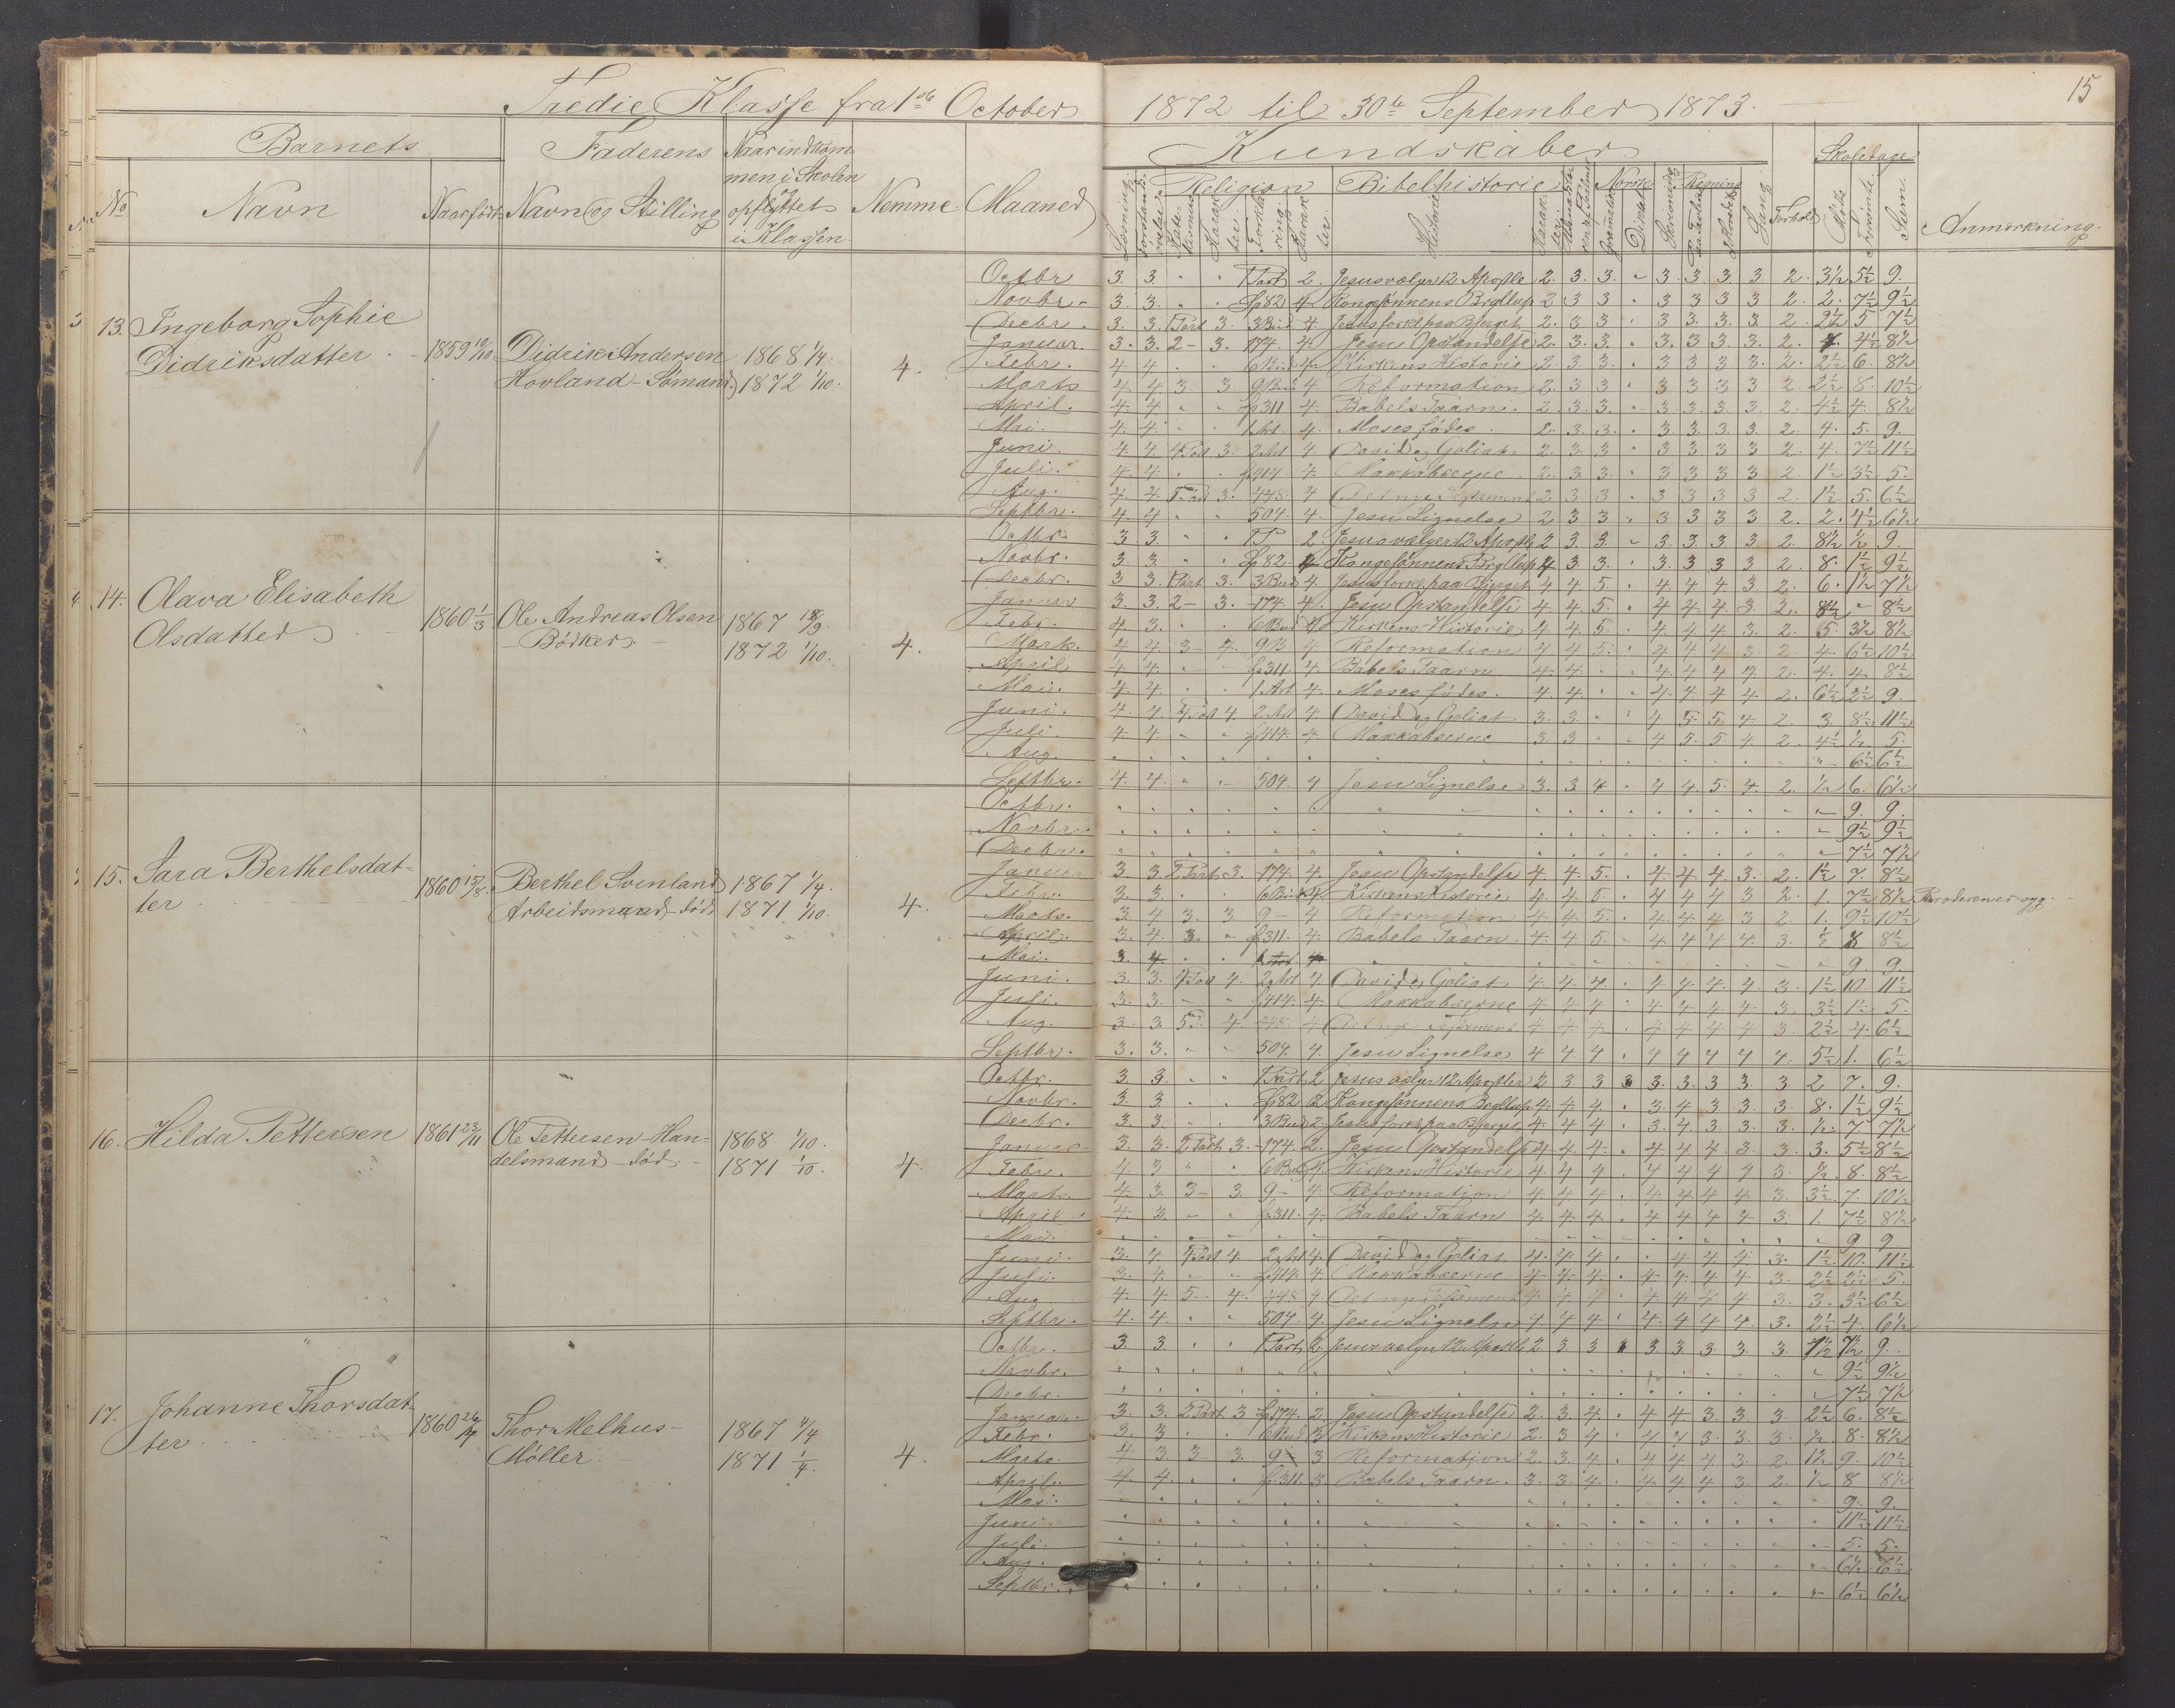 15
Tredie Klasse fra 1ste October 1872 til 30te September 1873.
Barnets
Faderens
Naar indkom-
men i Skolen
og
opflyttet
i Klassen.
Kundskaber
Skoledage
No
Navn
Naar født
Navn og Stilling
Nemme.
Maaned
Religion
Bibelhistorie
Norsk
Regning
Historie
Dictat
Sang
Forhold
Møtt
Forsømte
Sum.
Anmærkning.
13. Ingeborg Sophie
Didriksdatter
1859 19/10
Didrik Andersen
Hovland - Sømand
1868 1/4.
1872 1/10.
4.
Octbr 3. 3. " " 1 Part 2. Jesus vælger 12 Apostle 2. 3. 3. " 3. 3. 3. 3. 2. 3½ 5½ 9.
Novbr. 3. 3. " " Sp 82 4 Kongesønnens Bryllup 2 3 3 " 3 3 3 3 2. 2. 7½ 9½
Decbr. 3. 3. 1 Part 3. 3 Bud 4. Jesus forkl. paa Bjerget 2. 3 3 " 3 3. 3. 3. 2. 2½ 5 7½
Januar. 3. 3. 2 - 3. 174. 4. Jesu Opstandelse 2. 3. 3. " 3. 3. 3. 3. 2. 4. 4½ 8½
Febr. 4 4 " " 6 Bud 4. Kirkens Historie 2. 3 3. " 3 3 3 3. 2. 2½ 6. 8½
Marts 4 4 3 3. 9 Bud 4. Reformation 2. 3 3 " 3 3 3 3 2. 2½ 8. 10½
April. 4. 4 " " Sp 311 4. Babels Taarn. 2. 3. 3. " 3. 3. 3. 3. 2. 4½ 4. 8½
Mai. 4. 4. " " 1 Art 4. Moses fødes. 2. 3. 3. " 3. 3. 3. 3. 2. 4. 5. 9.
Juni. 4 4 4 Part 3. 2 Art 4 David og Goliat. 2. 3. 3 " 3 3 3 3 2. 4. 7½ 11½
Juli. 4. 4. " " Sp 414 4. Makkabæerne. 2. 3. 3. " 3 3 3 3 2 1½ 3½ 5.
Aug. 4 4. 5 Part 3. 448. 4 Det nye Testament 2. 3 3 " 3 3 3 3 2. 1½ 5. 6½
Septbr. 4. 4. " " 504. 4. Jesu Lignelse 2. 3 3 " 3 3 3 3 2. 2. 4½ 6½
14. Olava Elisabeth
Olsdatter
1860 1/3
Ole Andreas Olsen
- Bødker. -
1867 18/9.
1872 1/10.
4.
Octbr. 3. 3. " " 1 P 2. Jesus vælger 12 Apostle 2 3 3. " 3. 3. 3. 3. 2. 8½ ½ 9.
Novbr. 3. 3. " " Sp 82. 4 Kongesønnens Bryllup 4 3 3. " 3. 3 3 3 2. 8. 1½ 9½
Decbr. 3 3. 1 Part 3. 3 Bud 4. Jesus forkl. paa Bjerget 4 4 5. " 4. 4. 4 3 2. 6. 1½ 7½
Januar 3. 3. 2 - 3. 174. 4. Jesu Opstandelse 4. 4 5. " 4 4. 4. 3. 2. 8½ " 8½
Febr. 4. 3. " " 6 Bud 4 Kirkens Historie 4 4 5. " 4. 4. 4 3. 2. 5. 3½ 8½
Marts. 4 4. 3 - 4. 9 B 4 Reformation 4 4 5. " 4 4 4 3. 2. 4. 6½ 10½
April 4 4. " " Sp 311. 4. Babels Taarn 4. 4. " " 4. 4. 4 4 2. 4. 4. 8½
Mai. 4. 4. " " 1 Art 4. Moses fødes. 4 4. " " 4. 4. 4 4 2. 6½ 2½ 9.
Juni. 4. 4. 4 Part 4. 2 Art 4 David og Goliat 3. 3. " " 4 5. 5. 4. 2. 3. 8½ 11½
Juli. 4. 4. " " Sp 414. 4. Makkabæerne 3. 3 " " 4 5. 5 4. 2. 4½ ½ 5.
Aug. " " 6½ 6½
Septbr. 4. 4. " " 504. 4 Jesu Lignelse 3. 3 4 " 4 4. 5. 4. 2. ½ 6. 6½
15. Sara Berthelsdat-
ter
1860 15/8.
Berthel Svinland
Arbeidsmand - død
1867 1/4.
1871 1/10.
4.
Octbr. " " 9. 9.
Novbr. " " 9½ 9½
Decbr. " " 7½ 7½
Januar 3 3. 2 Part 3. 174 4. Jesu Opstandelse 4. 4. 5. " 4. 4. 4. 3. 2. 1½ 7. 8½
Febr. 3. 3. " 6 Bud 4 Kirkens Historie 4 4 5. " 4 4 4 3 2. 1. 7½ 8½
Marts. 3 4 3. 3. 9 - 4 Reformation 4. 4 5. " 4. 4 4 3 2. 1. 9½ 10½
April. 3. 4. 3. " Sp 311. 4. Babels Taarn. 4. 4 5. " 4. 4 4 4. 3. ½ 8 8½
Mai. 3. 4. " " 1 Art 4 " " 9. 9.
Juni. 3. 3. 4 Part 4. 2 Art 4 David og Goliat 4. 4 4. " 4. 4. 4. 4 3. 1½ 10. 11½
Juli. 3. 3. " " Sp 414. 4. Makkabæerne 4 4 4 " 4 4. 4. 4 3. 3½ 1½ 5.
Aug. 3. 3. 5 P. 4. 448. 4 Det nye Testament 4 4. 4. " 4. 4 4 4 3. 2½ 4. 6½
Septbr. 3. 3. " " 504. 4. Jesu Lignelse 4 4. 4. " 4 4 4 4 4. 5½ 1. 6½
16. Hilda Pettersen
1861 23/11
Ole Pettersen - Han-
delsmand - død -
1868 1/10.
1871 1/10.
4.
Octbr. 3. 3. " " 1 Part 2 Jesus vælger 12 Apostler 2 3 3 3 3. 3. 3 3. 3. 2 7. 9.
Novbr. 3. 3 " " Sp 82 2 Kongesønnens Bryllup 4. 4. 4. " 3. 4 3 3. 3. 8. 1½ 9½
Decbr. 3. 3 " " 3 Bud 2. Jesus forkl. paa Bjerget 4. 4 4. " 3. 4 3 3. 3. ½. 7 7½
Januar 3. 3. 2 Part 3. 174. 2. Jesu Opstandelse 4 4 4. " 4 4 4 3. 3. 3. 5½ 8½
Febr. 4 3 " " 6 Bud 4. Kirkens Historie 4 4 4. " 4 4 4 4 3. ½. 8. 8½
Marts. 4. 3. 3 - 3. 9 - 4. Reformation 4. 4 4. " 4. 4 4 4 3. 3½ 7. 10½
April 4. 3. " " Sp 311. 4. Babels Taarn 4. 4. 4. " 4 4 4 4 3. 1. 7½ 8½
Mai. " " 9 9
Juni. 3. 4. 4 Part 4. 2 Art 4. David og Goliat 4. 4. 4. " " 4. 4. 4. 3. 1½ 10. 11½
Juli. 3. 4. " " Sp 414. 4. Makkabæerne 4. 4. 4. " 4. 4. 4 4 3. 2½ 2½ 5.
Aug. 4. 4. 5 - 4. 448 4. Det nye Testament 4 4 4 " 4. 4 4 4 3. 3. 3½ 6½
Septbr. 4. 4. " " 504. 4. Jesu Lignelse 4 4 4 " 4. 4 4 4. 3. 2½ 4. 6½
17. Johanne Thorsdat-
ter
1860
Thor Melhus -
Møller -
1867 4/4
1871 1/4.
4.
Octbr. 3. 3. " " 1 Part 2. Jesus vælger 12 Apostle 2. 3. 3 " 3 3 3 3. 3. 1½ 7½ 9.
Novbr. " " 9½ 9½
Decbr. " " 7½ 7½
Januar. 3. 3. 2 Part 3 Sp 174. 2. Jesu Opstandelse 2. 3. 4. " 4 4 3. 3. 3. 2½ 6. 8½
Febr. 3. 3. " " 6 Bud 3 Kirkens Historie 2. 3 4 " 4 4 3. 3. 3. ½ 8. 8½
Marts. 4 3. 3 - 3. 9 3 Reformation 2. 3. 4. " 4 4 4 3. 2. 1½ 9. 10½
April. 4. 4. " " Sp 311. 3 Babels Taarn. 3. 3. 4. " 4 4 4 3 2. ½ 8 8½
Mai. " " 9. 9.
Juni. " " 11½ 11½
Juli. " " 5. 5.
Aug. " " 6½ 6½
Septbr. " " 6½ 6½